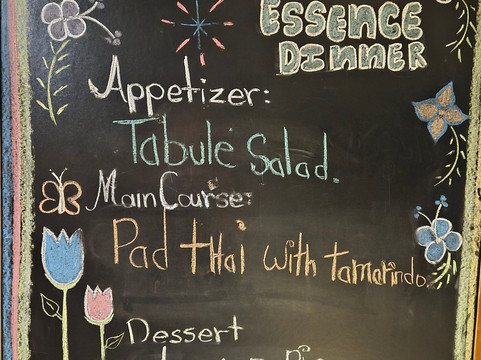 ESSENCE
DINNER
Appetizer:
Tabulé Salad.
Main Course:
Pad tHai with tamarindo.
Dessert